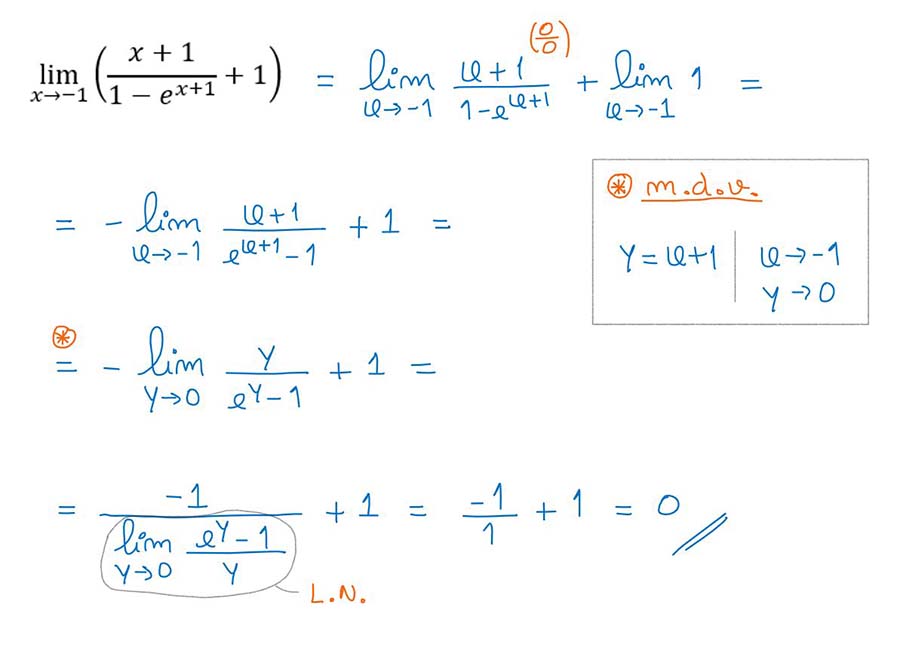 lim x→−1 ( (x + 1)/(1 − e^(x+1)) + 1 ) = lim x→-1 (x+1)/(1-e^(x+1)) (0/0) + lim x→-1 1 =
= - lim x→-1 (x+1)/(e^(x+1) - 1) + 1 =
⊛ m.d.v.
y = x+1 | x→-1
y→0
⊛
= - lim y→0 y/(e^y - 1) + 1 =
= -1/(lim y→0 (e^y - 1)/y) + 1 = -1/1 + 1 = 0
L.N.